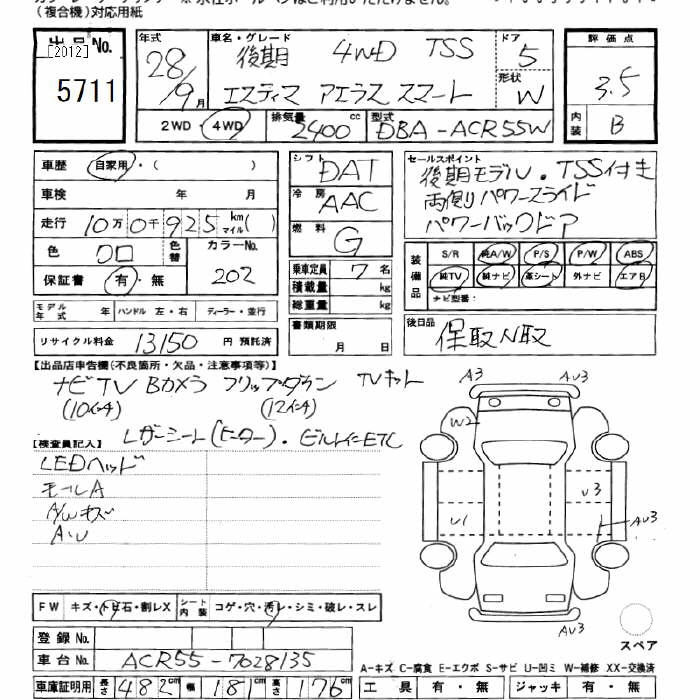 (複合機)対応用紙
出品No. [2012] 5711
年式 28/9月
車名・グレード 後期 4WD TSS
エスティマ アエラス スマート
ドア 5
形状 W
2WD・4WD 排気量 2400cc 型式 DBA-ACR55W
評価点 3.5
内装 B
車歴 自家用・( )
車検 年 月
走行 10万0千925km マイル( )
色 クロ 色替 カラーNo. 202
保証書 有・無
モデル年式 年 ハンドル 左・右 ディーラー・並行
リサイクル料金 13150 円 預託済
シフト DAT
冷房 AAC
燃料 G
乗車定員 7名
積載量 kg
総重量 kg
書類期限 月 日
セールスポイント
後期モデル・TSS付き
両側パワースライド
パワーバックドア
装備品 S/R 純A/W P/S P/W ABS
純TV 純ナビ 革シート 外ナビ エアB
ナビ型番:
後日品 保取N取
【出品店申告欄(不良箇所・欠品・注意事項等)】
ナビTV Bカメラ フリップダウン TVキット
(10インチ) (12インチ)
レザーシート(ヒーター)・ビルトインETC
【検査員記入】
LEDヘッド
モールA
A/Wキズ
A・U
A3 AU3
W2
U3
U1 AU3
AU3
スペア
FW キズ・トビ石・割レX シート内装 コゲ・穴・汚レ・シミ・破レ・スレ
登録No.
車台No. ACR55-7028135
A—キズ C—腐食 E—エクボ S—サビ U—凹ミ W—補修 XX—交換済
車庫証明用 長さ 482cm 幅 181cm 高さ 176cm 工具 有・無 ジャッキ 有・無